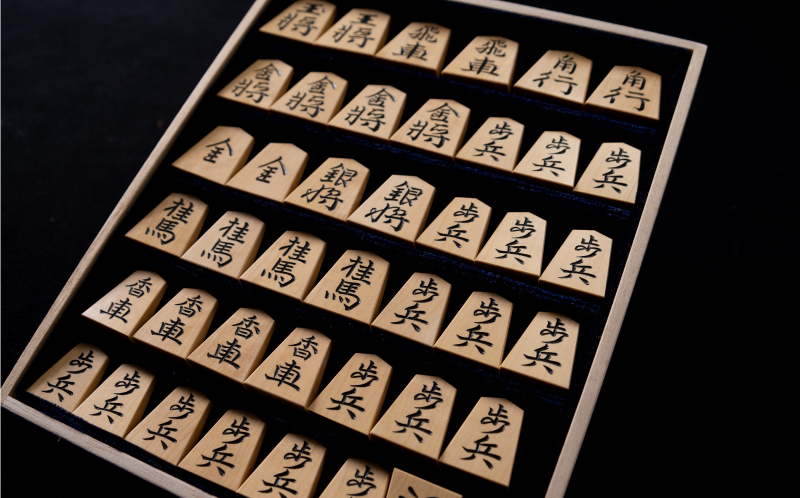 玉將 王將 飛車 飛車 角行 角行
金將 金將 金將 金將 歩兵 歩兵 歩兵
全 全 銀将 銀将 歩兵 歩兵 歩兵
桂馬 桂馬 桂馬 桂馬 歩兵 歩兵 歩兵
香車 香車 香車 香車 歩兵 歩兵 歩兵
歩兵 歩兵 歩兵 歩兵 歩兵 歩